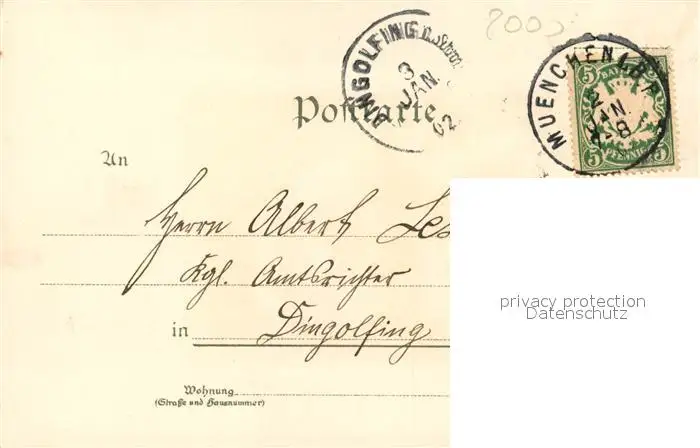 8003
DINGOLFING
3
JAN.
02
MUENCHEN 1.B.P.
2
JAN.
7-8
BAYERN
5 5
5 5
PFENNIG
Postkarte
An
Herrn Albert
Kgl. Amtsrichter
in Dingolfing
Wohnung
(Straße und Hausnummer)
privacy protection
Datenschutz